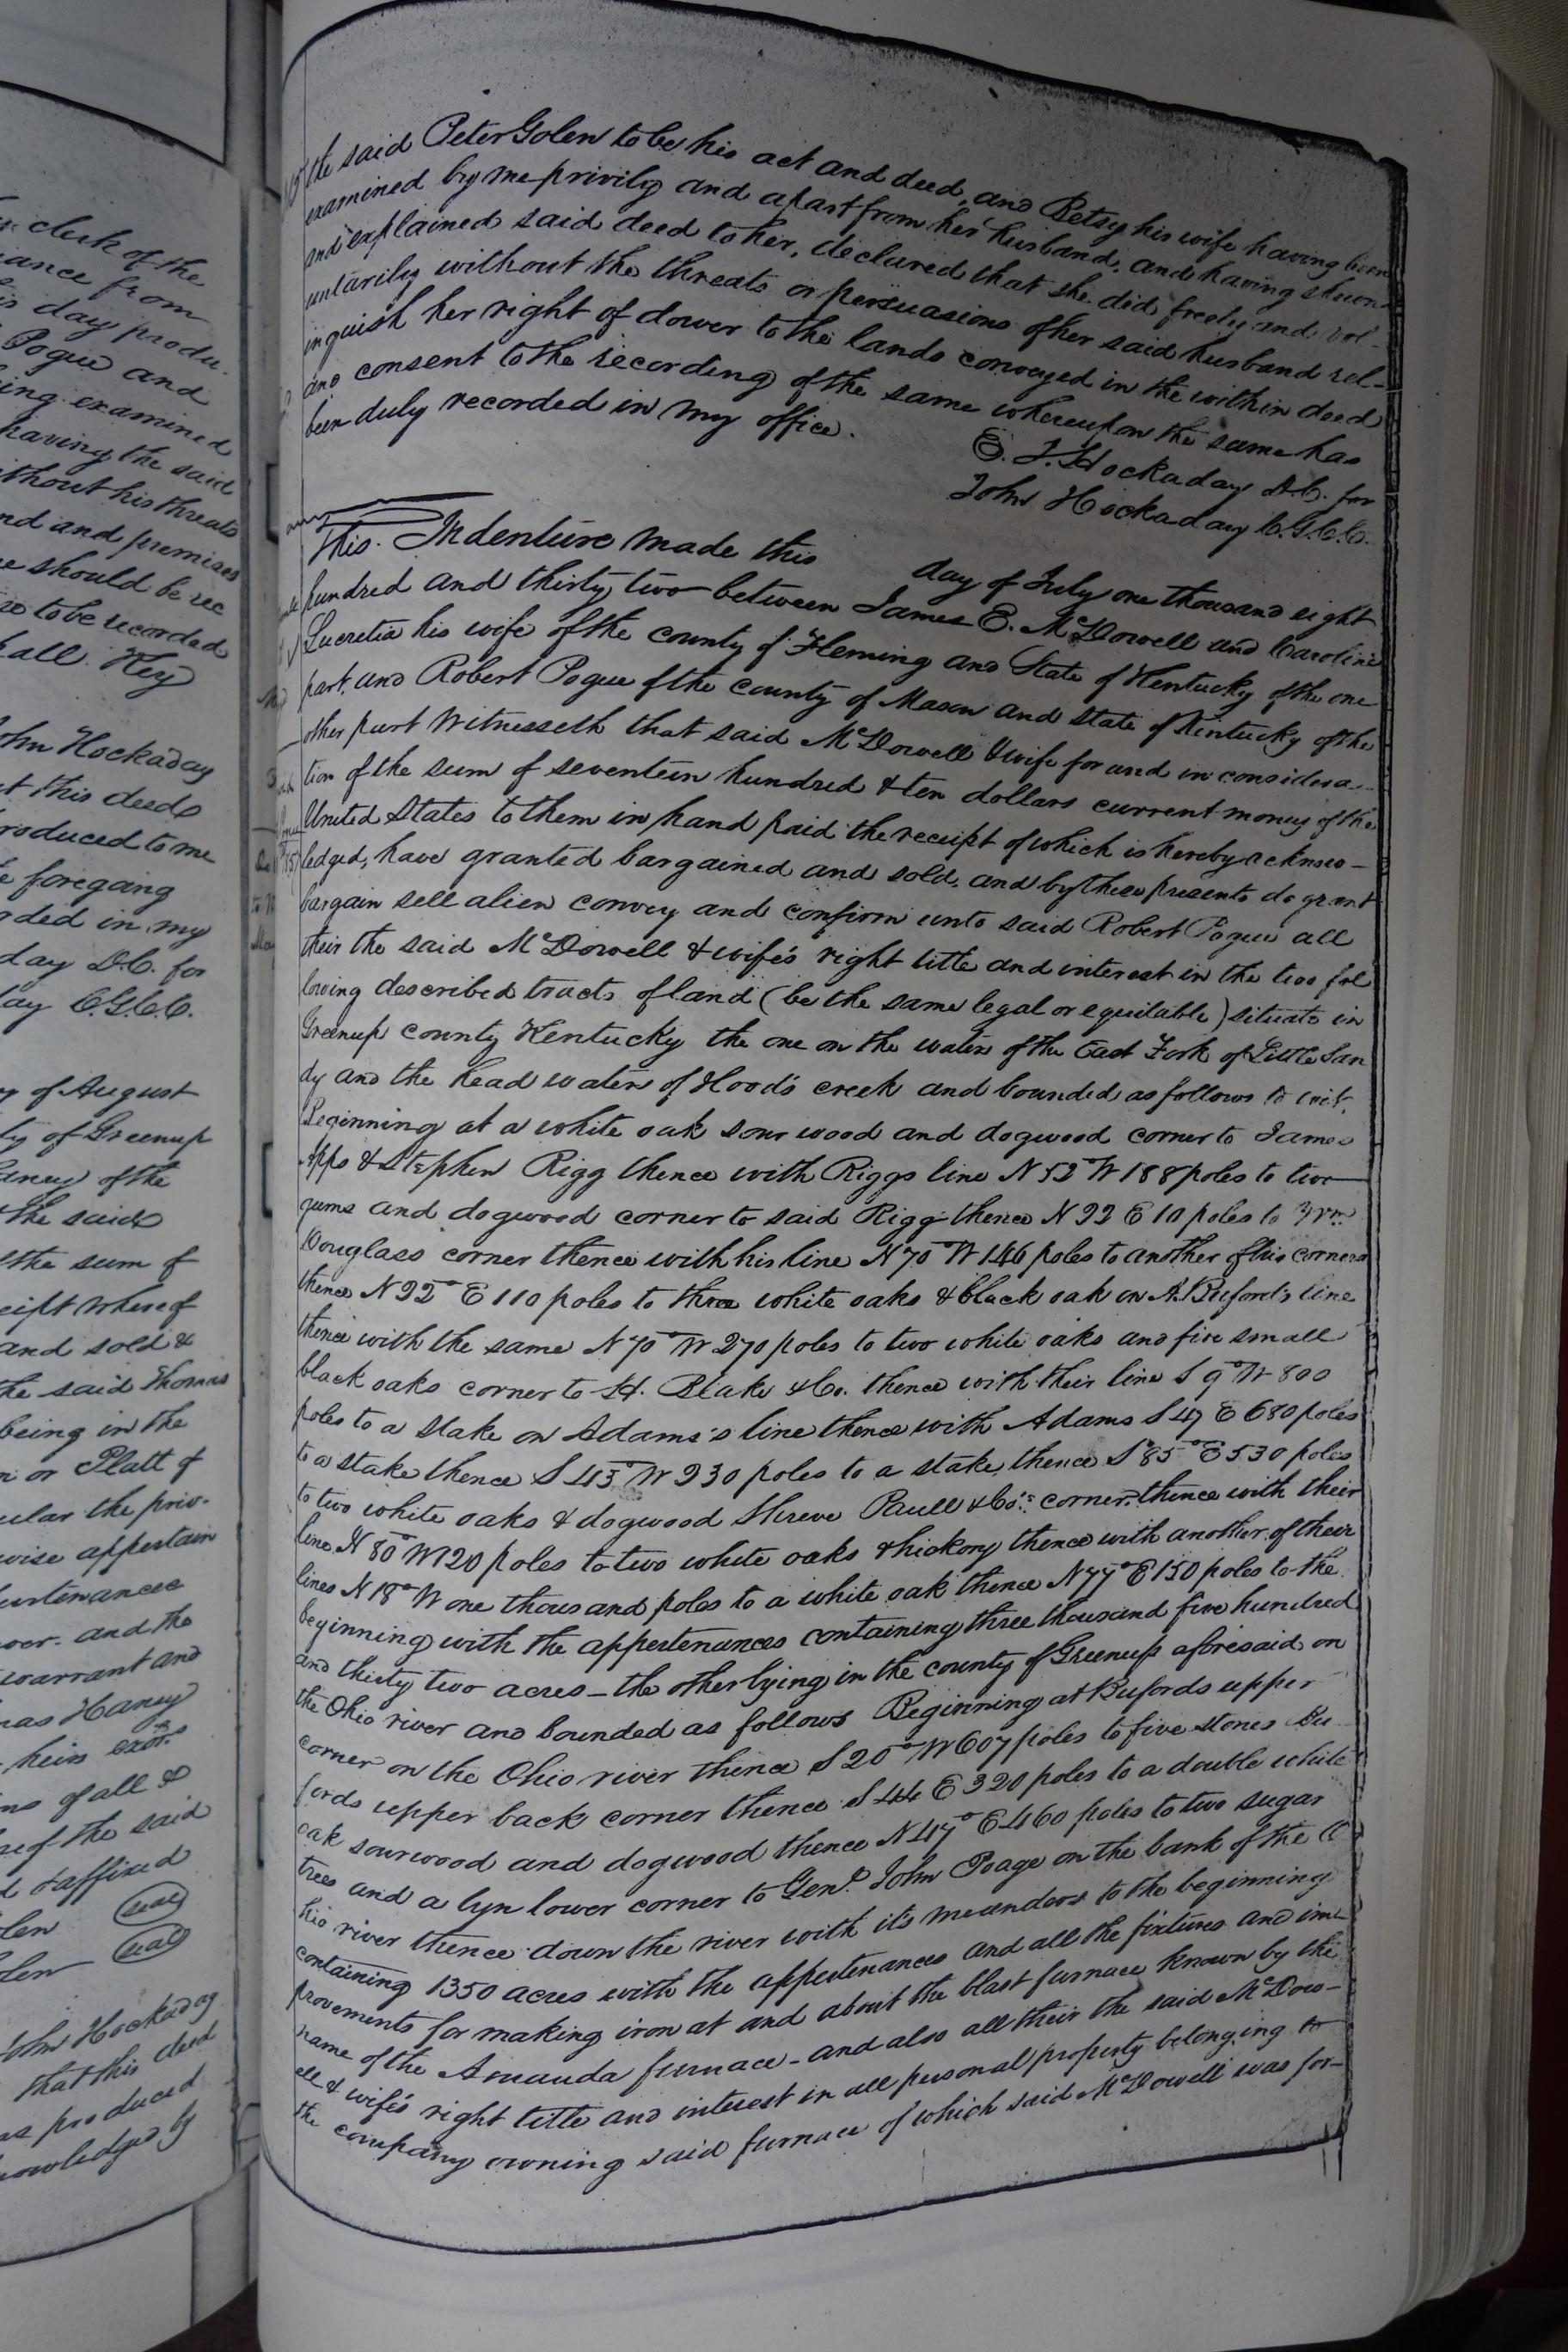 clerk of the
ance from
is day produ-
Pogue and
ing examined
having the said
ithout his threats
nd and premises
e should be rec
to be recorded
all. Key
ohn Hockaday
t this deed
roduced to me
e foregoing
rded in my
day D.C. for
ay C.G.C.C.
y of August
ty of Greenup
aney of the
the said
the sum of
ceipt whereof
and sold &
the said Thomas
being in the
n or Platt of
ular the priv-
wise appertain
urtenances
ver. and the
warrant and
mas Haney
heirs exors
ns of all &
of the said
d & affixed
olen (seal)
olen (seal)
ohn Hockaday
that this deed
as produced
nowledged by
the said Peter Golen to be his act and deed, and Betsy his wife having been
examined by me privily and apart from her husband, and having shewn
and explained said deed to her, declared that she did freely and vol-
untarily without the threats or persuasions of her said husband rel-
inquish her right of dower to the lands conveyed in the within deed
and consent to the recording of the same whereupon the same has
been duly recorded in my office.
E. F. Hockaday D.C. for
John Hockaday C.G.C.C.
This Indenture made this day of July one thousand eight
hundred and thirty two between James E. McDowell and Caroline
Lucretia his wife of the county of Fleming and State of Kentucky of the one
part, and Robert Pogue of the county of Mason and state of Kentucky of the
other part Witnesseth that said McDowell & wife for and in considera-
tion of the sum of seventeen hundred & ten dollars current money of the
United States to them in hand paid the receipt of which is hereby acknow-
ledged, have granted bargained and sold, and by these presents do grant
bargain sell alien convey and confirm unto said Robert Pogue all
their the said McDowell & wife's right title and interest in the two fol
lowing described tracts of land (be the same legal or equitable) situate in
Greenup county Kentucky the one on the waters of the East Fork of Little San
dy and the head waters of Hood's creek and bounded as follows to wit,
Beginning at a white oak sour wood and dogwood corner to James
Apps & Stephen Rigg thence with Riggs line N 52° W 188 poles to two
gums and dogwood corner to said Rigg thence N 22 E 10 poles to Wm.
Douglass corner thence with his line N 70° W 146 poles to another of his corners
thence N 22° E 110 poles to three white oaks & black oak in A. Buford's line
thence with the same N 70° W 270 poles to two white oaks and five small
black oaks corner to H. Blake & Co. thence with their line S 9° W 800
poles to a stake on Adams's line thence with Adams S 47 E 680 poles
to a stake thence S 43° W 230 poles to a stake thence S 85° E 530 poles
to two white oaks & dogwood Shreve Paull & Co's corner, thence with their
line N 80° W 120 poles to two white oaks & hickory thence with another of their
lines N 18° W one thousand poles to a white oak thence N 77° E 150 poles to the
beginning with the appertenances containing three thousand five hundred
and thirty two acres - the other lying in the county of Greenup aforesaid, on
the Ohio river and bounded as follows Beginning at Bufords upper
corner on the Ohio river thence S 20° W 607 poles to five stones Bu
fords upper back corner thence S 44 E 320 poles to a double white
oak sourwood and dogwood thence N 47° E 460 poles to two sugar
trees and a lyn lower corner to Genl. John Poage on the bank of the O
hio river thence down the river with it's meanders to the beginning
containing 1350 acres with the appertenances and all the fixtures and im-
provements for making iron at and about the blast furnace known by the
name of the Amanda furnace - and also all their the said McDow-
ell & wife's right title and interest in all personal property belonging to
the company owning said furnace of which said McDowell was for-